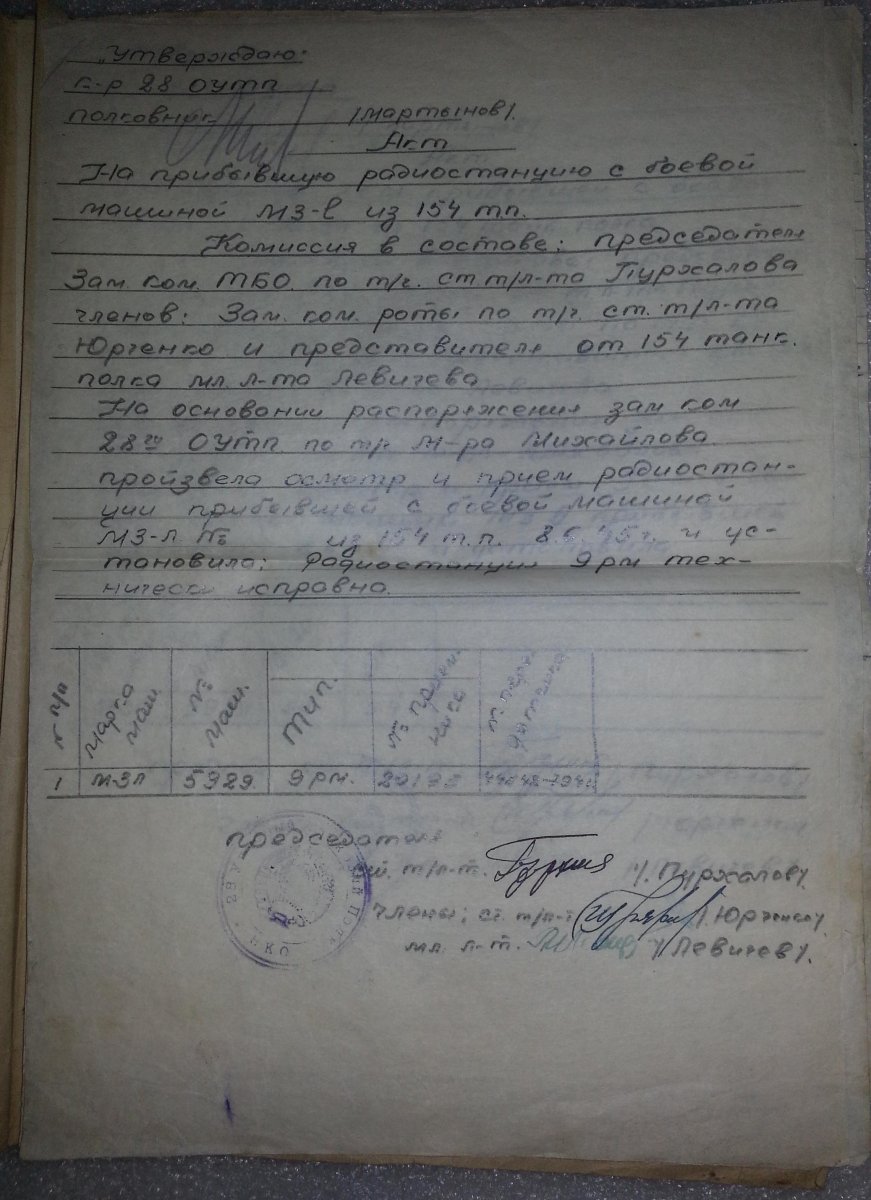 „Утверждаю"
к-р 28 ОУТП
полковник /мартынов/.
Акт
На прибывшую радиостанцию с боевой
машиной МЗ-л из 154 тп.
Комиссия в составе: председателя
Зам. ком. МБО. по т/ч. ст т/л-та Пурхалова
членов: Зам. ком. роты по т/ч. ст. т/л-та
Юрченко и представителя от 154 танк.
полка мл. л-та Левичева
На основании распоряжения зам ком
28го ОУТП по т/ч М-ра Михайлова
пройзвела осмотр и прием радиостан-
ции прибывшей с боевой машиной
МЗ-л № из 154 т.п. 8.6.45 г. и ус-
тановила: Радиостанция 9рм тех-
нически исправна.
№ п/п
марка маш.
№ маш.
тип.
№ прием-
№
1 МЗл 5929 9рм.
председатель
т/л-т. /Пурхалов/.
члены: ст. т/л-т /Юрченко/
мл. л-т. /Левичев/.